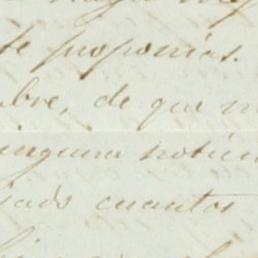 te proponias.
bre, de que
ninguna notici
iado cuantos